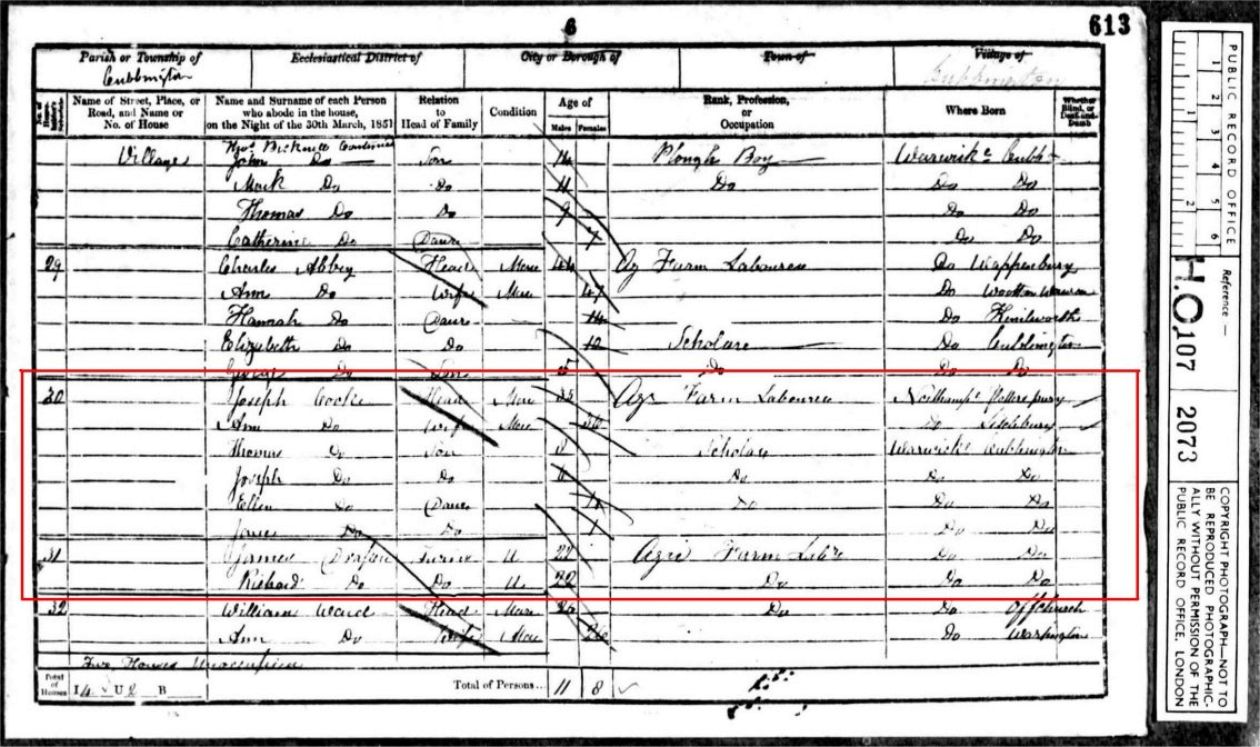 6
613
Parish or Township of Ecclesiastical District of City or Borough of Town of Village of
Cubbington
Name of Street, Place, or Road, and Name or No. of House
Name and Surname of each Person who abode in the house, on the Night of the 30th March, 1851
Relation to Head of Family
Condition
Age of
Males Females
Rank, Profession, or Occupation
Where Born
Whether Blind, or Deaf-and-Dumb
Village John Do Son 14 Plough Boy
Mark Do Do 11 Do Do Do
Thomas Do Do 9 Do Do
Catherine Do Daur 7 Do Do
29 Charles Abbey Head Mar 44 Ag Farm Labourer Do Wappenbury
Ann Do Wife Mar 47 Do Wootton Wawen
Hannah Do Daur 14 Do Kenilworth
Elizabeth Do Do 10 Scholar Do Cubbington
George Do Son 5 Do Do Do
30 Joseph Cooke Head Mar 35 Agr Farm Labourer
Ann Do Wife Mar 36 Do
Thomas Do Son 8 Scholar Cubbington
Joseph Do Do 6 Do Do Do
Ellen Do Daur Do Do Do
Jane Do Do 1 Do Do
31 James U 22 Farm Do Do
Richard Do Do U 22 Do Do Do
32 William Ward Head Mar 26 Do Do Offchurch
Ann Do Wife Mar 26 Do
Two Houses Unoccupied
Total of Houses I 4 U 2 B Total of Persons... 11 8
PUBLIC RECORD OFFICE
1 2 3 4 5 6
1 2
Reference —
H.O.107 2073
COPYRIGHT PHOTOGRAPH—NOT TO BE REPRODUCED PHOTOGRAPHICALLY WITHOUT PERMISSION OF THE PUBLIC RECORD OFFICE, LONDON